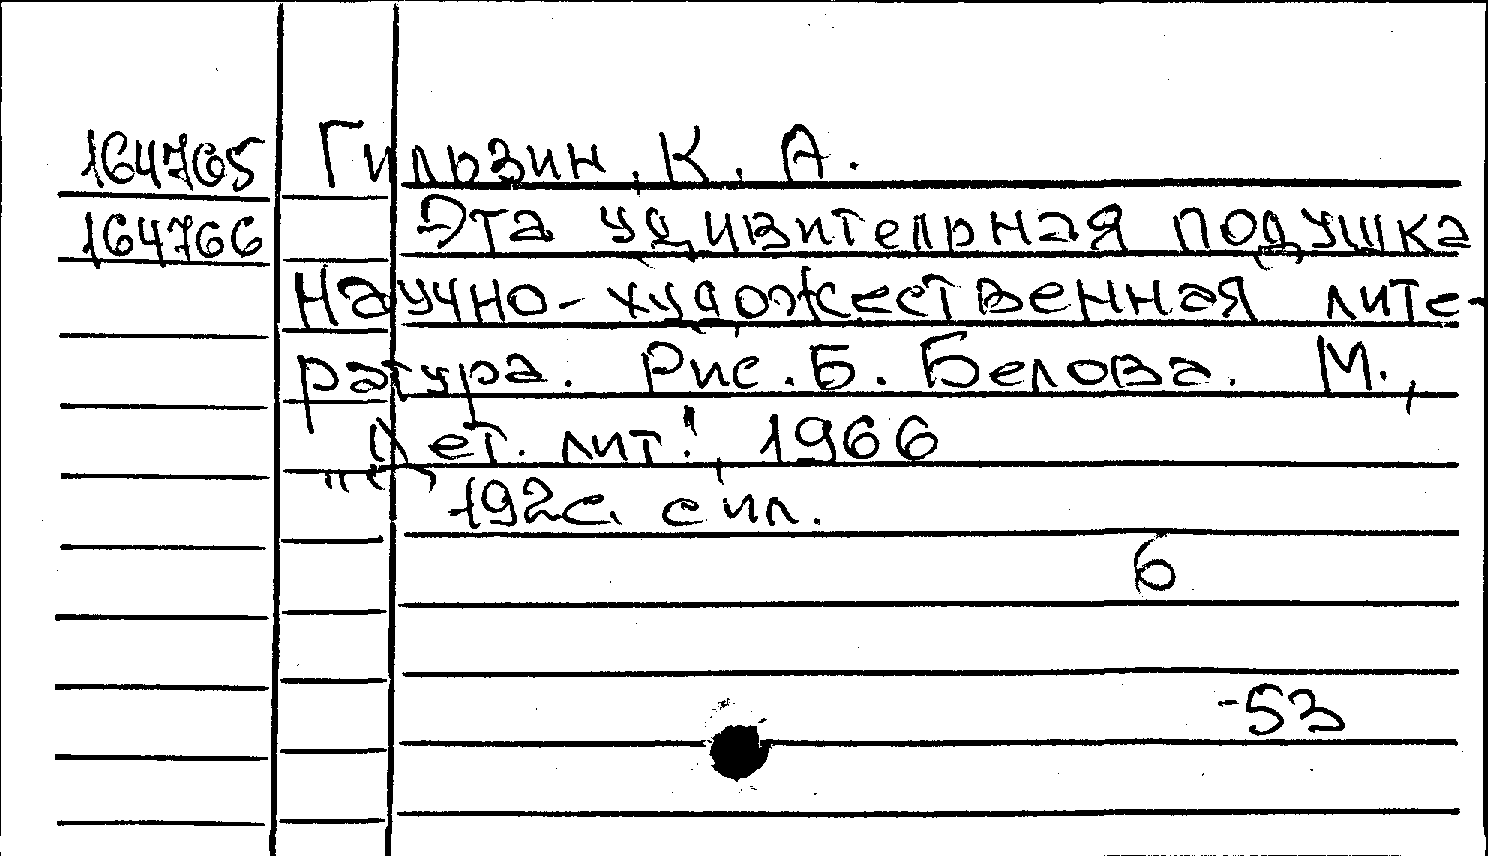 164765 Гильзин, К. А.
164766 Эта удивительная подушка
Научно-художественная лите-
ратура. Рис. Б. Белова. М.,
"Дет. лит", 1966
192с. с ил.
6
-53